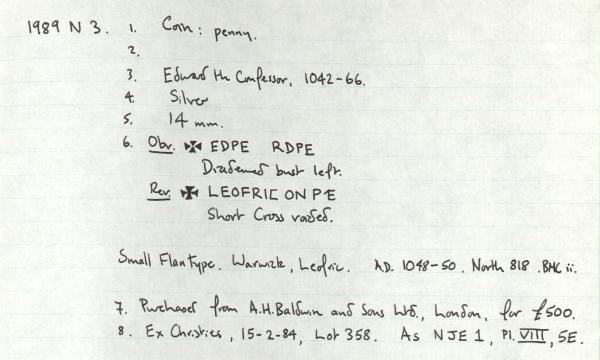 1989 N 3. 1. Coin: penny.
2.
3. Edward the Confessor, 1042-66.
4. Silver
5. 14 mm.
6. Obv. ✠ EDPE RDPE
Diademed bust left.
Rev. ✠ LEOFRIC ON PE
Short Cross voided.
Small Flan type. Warwick, Leofric. AD. 1048-50. North 818. BMC ii.
7. Purchased from A.H. Baldwin and Sons Ltd., London, for £500.
8. Ex Christies, 15-2-84, Lot 358. As NJE 1, Pl. VIII, 5E.